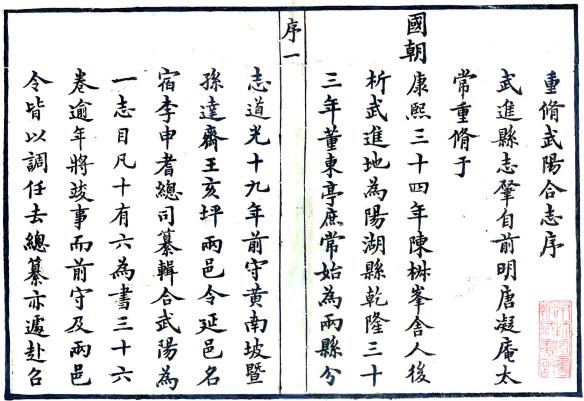 重脩武陽合志序
武進縣志肇自前明唐凝庵太
常重脩于
國朝康熙三十四年陳椒峯舍人後
析武進地為陽湖縣乾隆三十
三年董東亭庶常始為兩縣分
序一
志道光十九年前守黃南坡暨
孫達齋王亥坪兩邑令延邑名
宿李申耆總司纂輯合武陽為
一志目凡十有六為書三十六
卷逾年將竣事而前守及兩邑
令皆以調任去總纂亦遽赴召